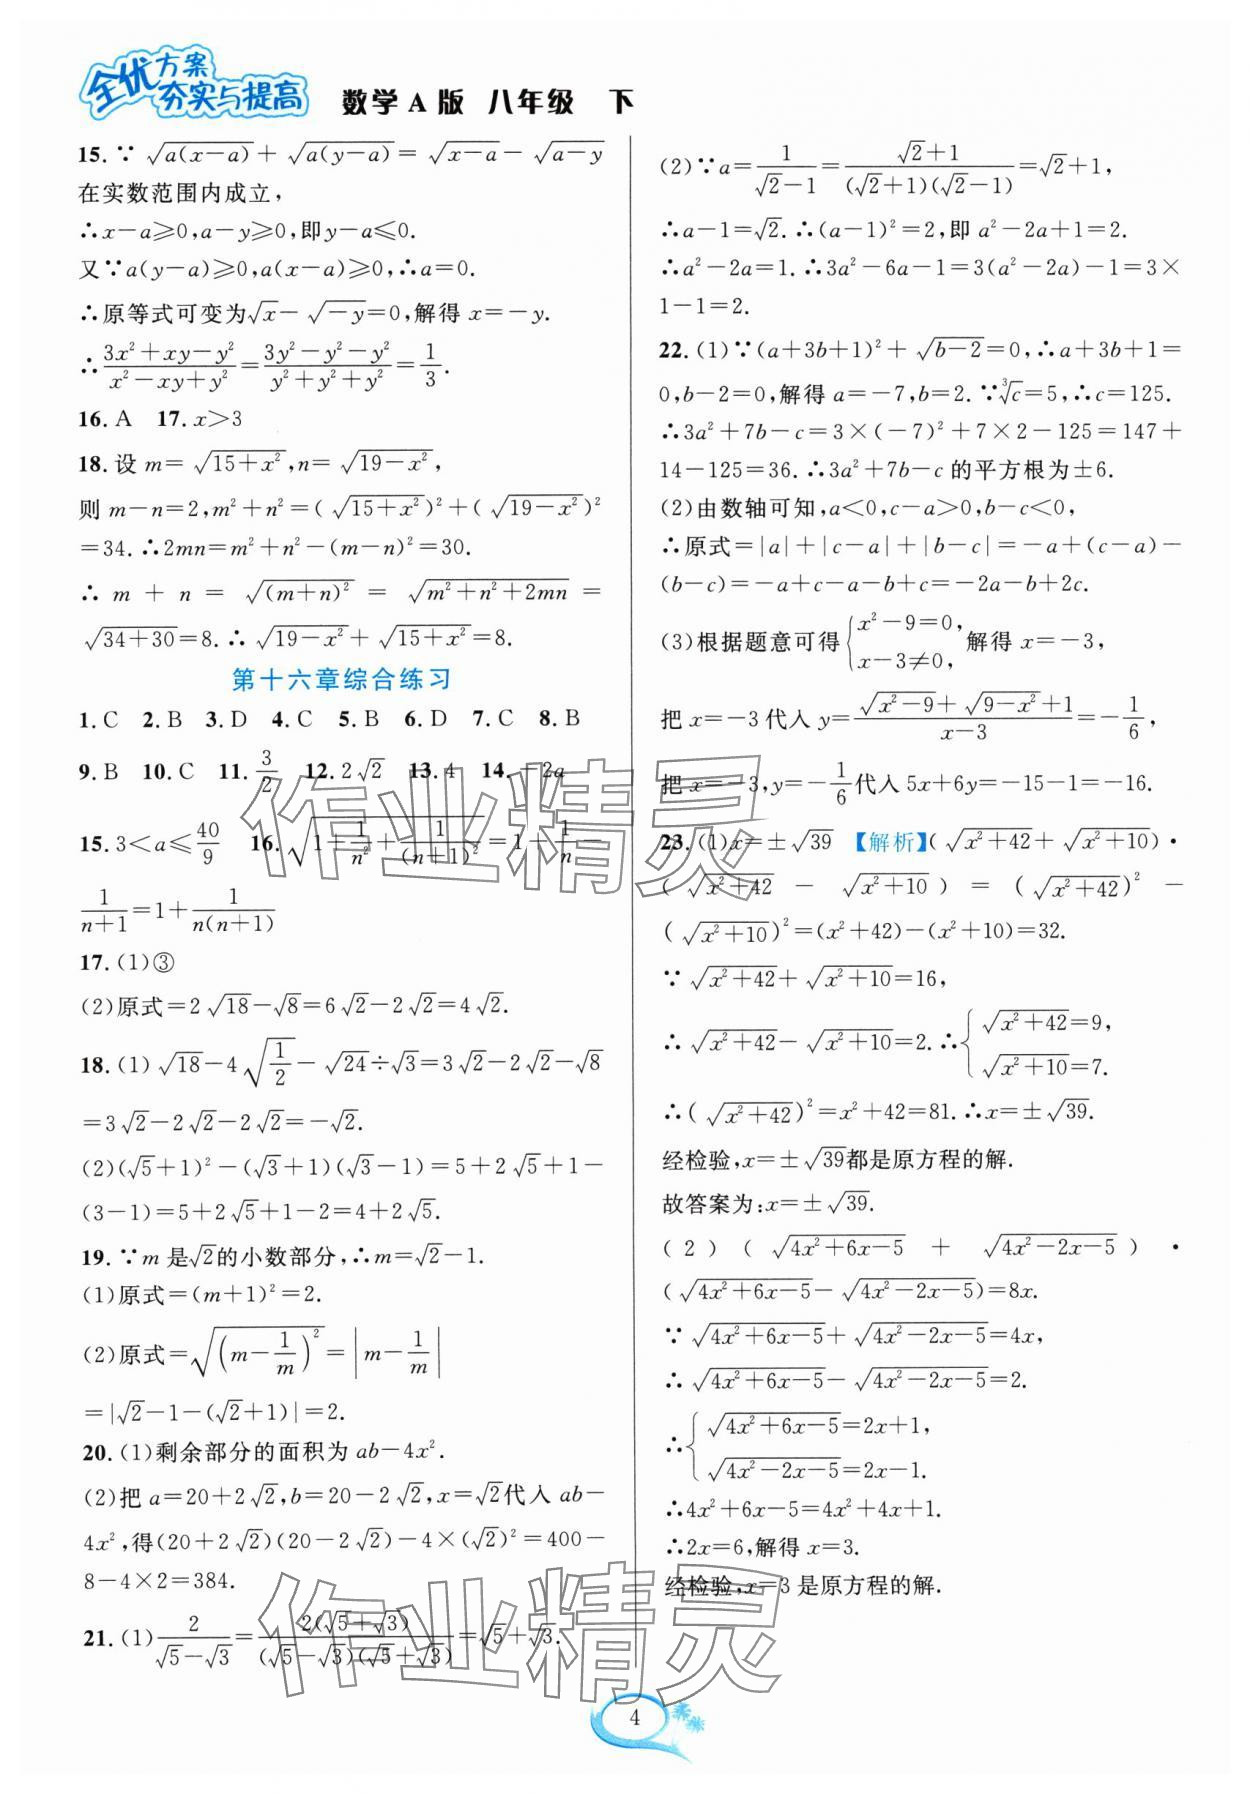 全优方案
夯实与提高
数学A版 八年级 下
15.∵√(a(x-a))+√(a(y-a))=√(x-a)-√(a-y)
在实数范围内成立,
∴x-a≥0,a-y≥0,即y-a≤0.
又∵a(y-a)≥0,a(x-a)≥0,∴a=0.
∴原等式可变为√x-√(-y)=0,解得x=-y.
∴(3x²+xy-y²)/(x²-xy+y²)=(3y²-y²-y²)/(y²+y²+y²)=1/3.
16.A 17.x>3
18.设m=√(15+x²),n=√(19-x²),
则m-n=2,m²+n²=(√(15+x²))²+(√(19-x²))²
=34.∴2mn=m²+n²-(m-n)²=30.
∴m+n=√((m+n)²)=√(m²+n²+2mn)=
√(34+30)=8.∴√(19-x²)+√(15+x²)=8.
第十六章综合练习
1.C 2.B 3.D 4.C 5.B 6.D 7.C 8.B
9.B 10.C 11.3/2 12.2√2 13.4 14.-2a
15.3<a≤40/9 16.√(1+1/n²+1/(n+1)²)=1+1/n-
1/(n+1)=1+1/(n(n+1))
17.(1)③
(2)原式=2√18-√8=6√2-2√2=4√2.
18.(1)√18-4√(1/2)-√24÷√3=3√2-2√2-√8
=3√2-2√2-2√2=-√2.
(2)(√5+1)²-(√3+1)(√3-1)=5+2√5+1-
(3-1)=5+2√5+1-2=4+2√5.
19.∵m是√2的小数部分,∴m=√2-1.
(1)原式=(m+1)²=2.
(2)原式=√((m-1/m)²)=|m-1/m|
=|√2-1-(√2+1)|=2.
20.(1)剩余部分的面积为ab-4x².
(2)把a=20+2√2,b=20-2√2,x=√2代入ab-
4x²,得(20+2√2)(20-2√2)-4×(√2)²=400-
8-4×2=384.
21.(1)2/(√5-√3)=2(√5+√3)/((√5-√3)(√5+√3))=√5+√3.
(2)∵a=1/(√2-1)=(√2+1)/((√2+1)(√2-1))=√2+1,
∴a-1=√2.∴(a-1)²=2,即a²-2a+1=2.
∴a²-2a=1.∴3a²-6a-1=3(a²-2a)-1=3×
1-1=2.
22.(1)∵(a+3b+1)²+√(b-2)=0,∴a+3b+1=
0,b-2=0,解得a=-7,b=2.∵∛c=5,∴c=125.
∴3a²+7b-c=3×(-7)²+7×2-125=147+
14-125=36.∴3a²+7b-c的平方根为±6.
(2)由数轴可知,a<0,c-a>0,b-c<0,
∴原式=|a|+|c-a|+|b-c|=-a+(c-a)-
(b-c)=-a+c-a-b+c=-2a-b+2c.
(3)根据题意可得{x²-9=0, x-3≠0, 解得x=-3,
把x=-3代入y=(√(x²-9)+√(9-x²)+1)/(x-3)=-1/6,
把x=-3,y=-1/6代入5x+6y=-15-1=-16.
23.(1)x=±√39 【解析】(√(x²+42)+√(x²+10))·
(√(x²+42)-√(x²+10))=(√(x²+42))²-
(√(x²+10))²=(x²+42)-(x²+10)=32.
∵√(x²+42)+√(x²+10)=16,
∴√(x²+42)-√(x²+10)=2.∴{√(x²+42)=9, √(x²+10)=7.
∴(√(x²+42))²=x²+42=81.∴x=±√39.
经检验,x=±√39都是原方程的解.
故答案为:x=±√39.
(2)(√(4x²+6x-5)+√(4x²-2x-5))·
(√(4x²+6x-5)-√(4x²-2x-5))=8x.
∵√(4x²+6x-5)+√(4x²-2x-5)=4x,
∴√(4x²+6x-5)-√(4x²-2x-5)=2.
∴{√(4x²+6x-5)=2x+1, √(4x²-2x-5)=2x-1.
∴4x²+6x-5=4x²+4x+1.
∴2x=6,解得x=3.
经检验,x=3是原方程的解.
作业精灵
作业精灵
4